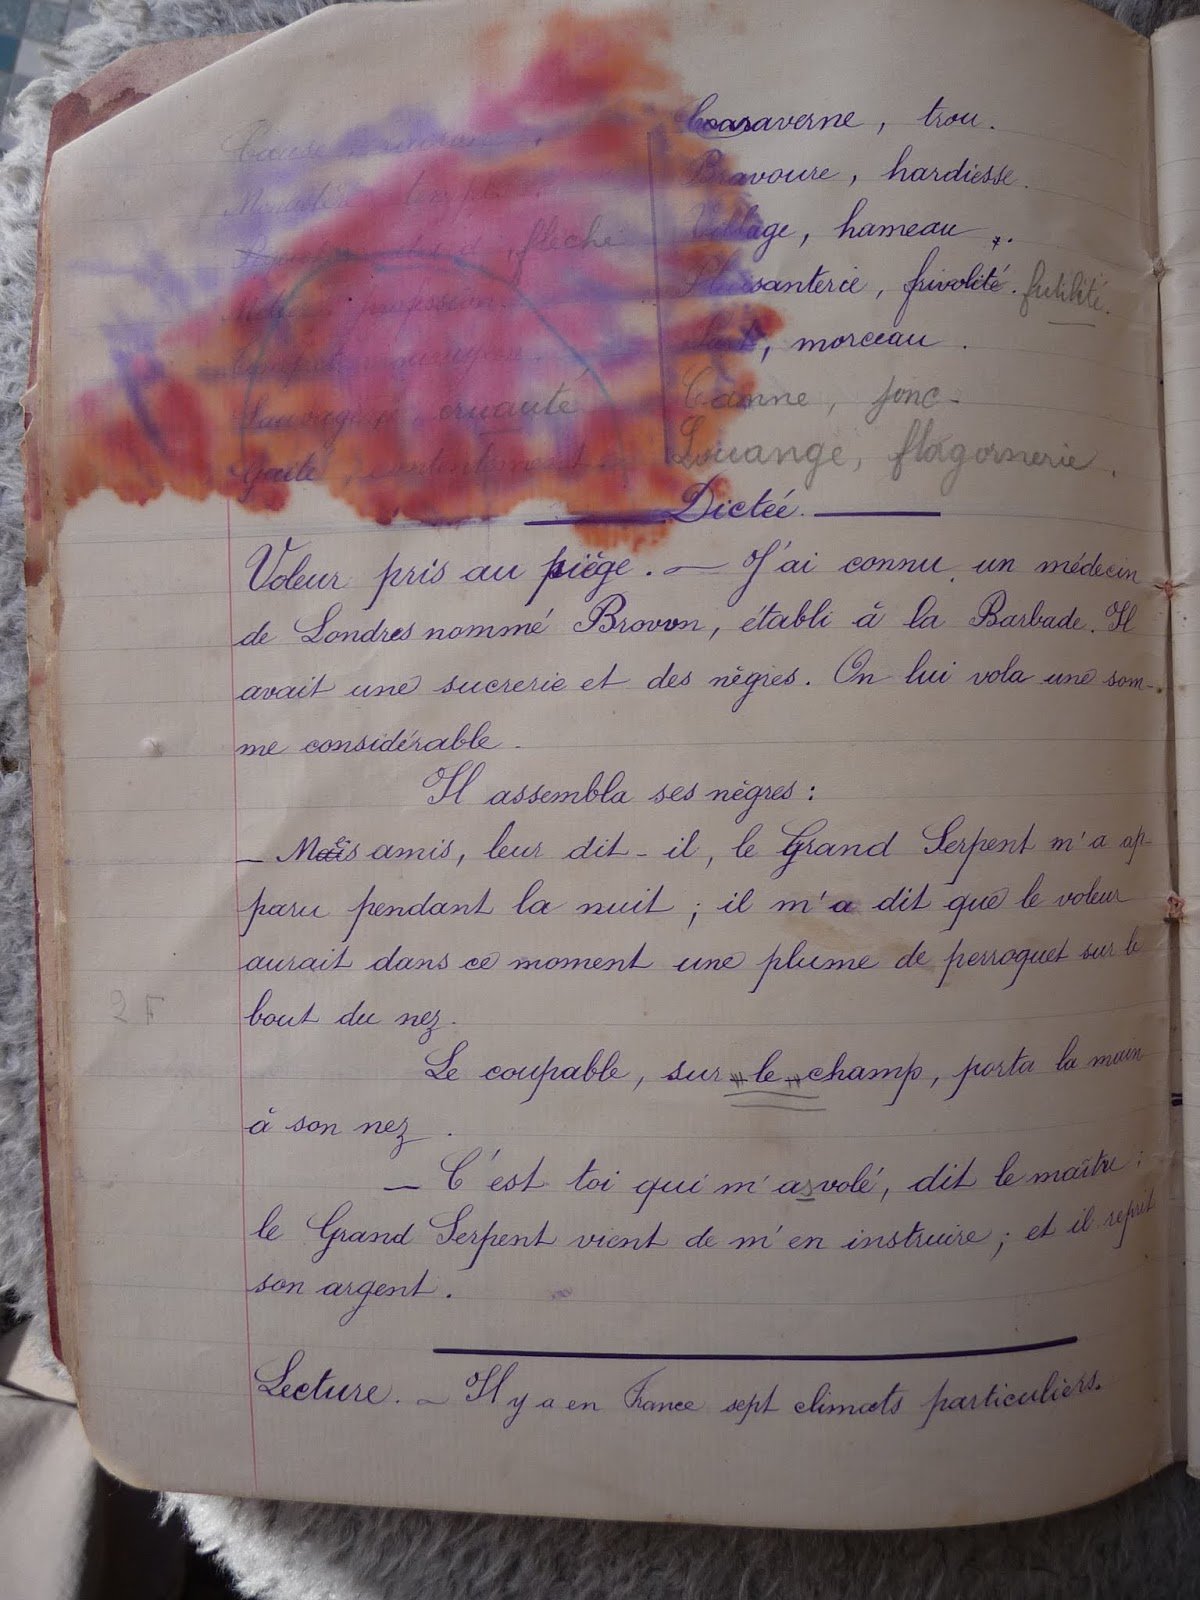 flèche
cruauté
Gaité, contentement
Caraverne, trou.
Bravoure, hardiesse.
Village, hameau.
Plaisanterie, frivolité. futilité.
morceau.
Canne, jonc.
Louange, flagornerie.
Dictée.
Voleur pris au piège. — J'ai connu un médecin
de Londres nommé Brovvn, établi à la Barbade. Il
avait une sucrerie et des nègres. On lui vola une som-
me considérable.
Il assembla ses nègres :
— Mes amis, leur dit-il, le Grand Serpent m'a ap-
paru pendant la nuit ; il m'a dit que le voleur
aurait dans ce moment une plume de perroquet sur le
bout du nez.
2 F
Le coupable, sur-le-champ, porta la main
à son nez.
— C'est toi qui m'as volé, dit le maître :
le Grand Serpent vient de m'en instruire ; et il reprit
son argent.
Lecture. — Il y a en France sept climats particuliers.